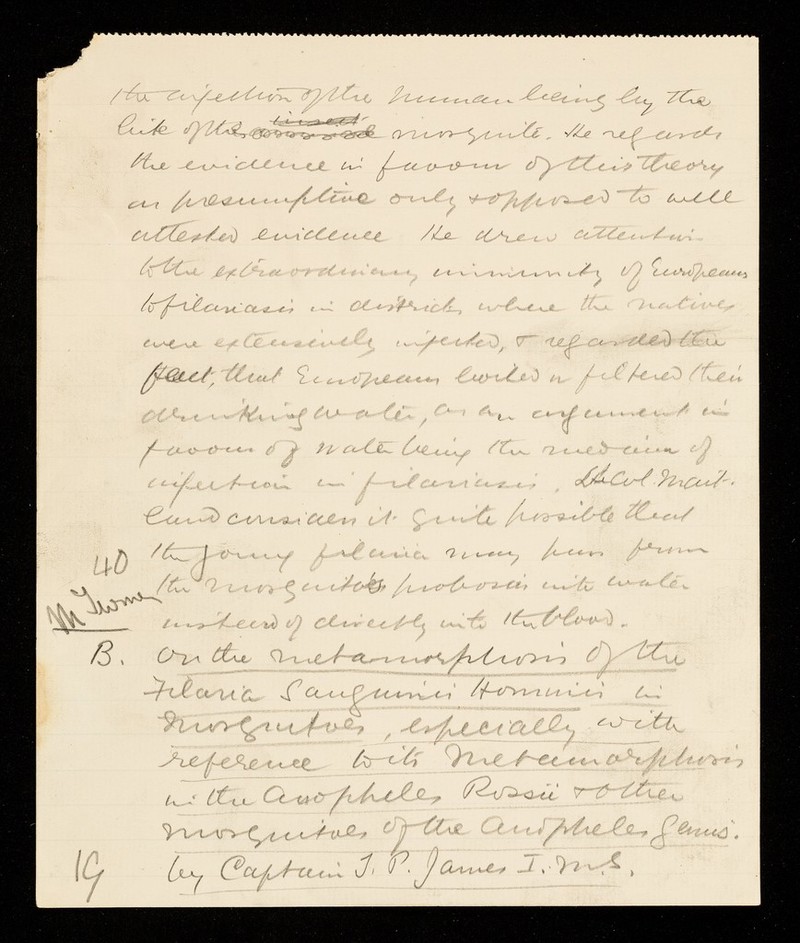 the infection of the human being by the
bite of the insect mosquito. He regards
the evidence in favour of this theory
as presumptive only & opposed to well
attested evidence He drew attention
to the extraordinary immunity of Europeans
to filariasis in districts where the natives
were extensively infected, & regarded the
fact, that Europeans boiled or filtered their
drinking water, as an argument in
favour of water being the medium of
infection in filariasis. Lt Col. Mait-
land considers it quite possible that
the young filaria may pass from
the mosquito's proboscis into water
instead of directly into the blood.
40
B. On the metamorphosis of the
Filaria Sanguinis Hominis in
Mosquitoes, especially with
reference to its Metamorphosis
in the Anopheles Rossii & other
mosquitoes of the Anopheles genus.
19 by Captain S. P. James I.M.S.